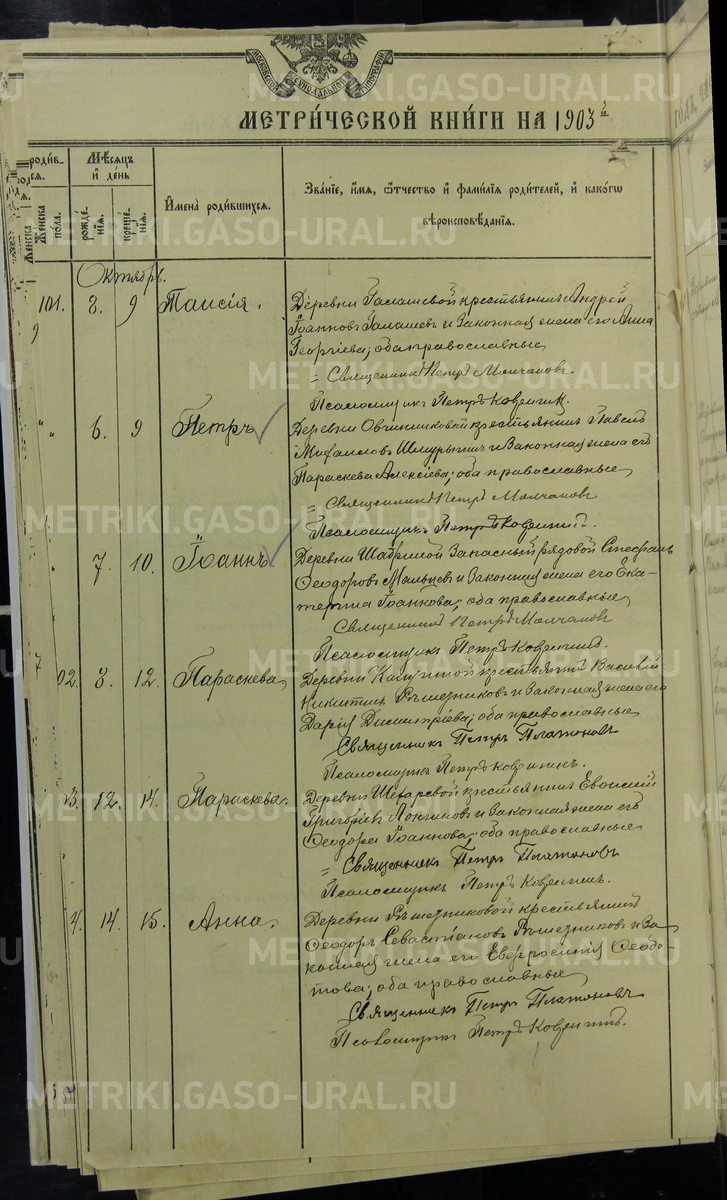 МОСКОВСКОЙ СѴНОДАЛЬНОЙ ТИПОГРАФІИ
METRIKI.GASO-URAL.RU
МЕТРИ́ЧЕСКОЙ КНИ́ГИ НА 1903 й
роди́в- ся.
Же́нска по́ла.
Мѣ́сяцъ и҆ де́нь
рожде́- нїѧ.
креще́- нїѧ.
И҆мена̀ роди́вшихся.
Зва́нїе, и҆́мѧ, ѻ҆́тчество и҆ фами́лїѧ роди́телей, и҆ како́гѡ
вѣроисповѣ́данїѧ.
Октябрь.
101. 8. 9 Таисія. Деревни Галашевой крестьянинъ Андрей
Іоанновъ Галашевъ и законная жена его Анна
Георгіева; оба православные
= Священникъ Петръ Молчановъ.
Псаломщикъ Петръ Ковригинъ.
" 6. 9 Петръ Деревни Овчинниковой крестьянинъ Павелъ
Михаиловъ Шмурыгинъ и законная жена его
Параскева Алексіева; оба православные
= Священникъ Петръ Молчановъ
Псаломщикъ Петръ Ковригинъ.
" 7. 10. Іоаннъ Деревни запасный рядовой Стефанъ
Ѳеодоровъ Мальцевъ и законная жена его Ека-
терина Іоаннова; оба православные
Священникъ Петръ Молчановъ
Псаломщикъ Петръ Ковригинъ.
02. 8. 12. Параскева Деревни крестьянинъ Василій
Никитинъ Рѣшетниковъ и законная жена его
Дарія Димитріева; оба православные
Священникъ Петръ Платоновъ
Псаломщикъ Петръ Ковригинъ.
03. 12. 14. Параскева. Деревни крестьянинъ Евѳимій
Григоріевъ Лончиковъ и законная жена его
Ѳеодора Іоаннова; оба православные
= Священникъ Петръ Платоновъ
Псаломщикъ Петръ Ковригинъ.
4. 14. 15. Анна. Деревни Рѣшетниковой крестьянинъ
Ѳеодоръ Севастіановъ Рѣшетниковъ и за-
конная жена его Евфросинія Ѳеодо-
това; оба православные
Священникъ Петръ Платоновъ
Псаломщикъ Петръ Ковригинъ.